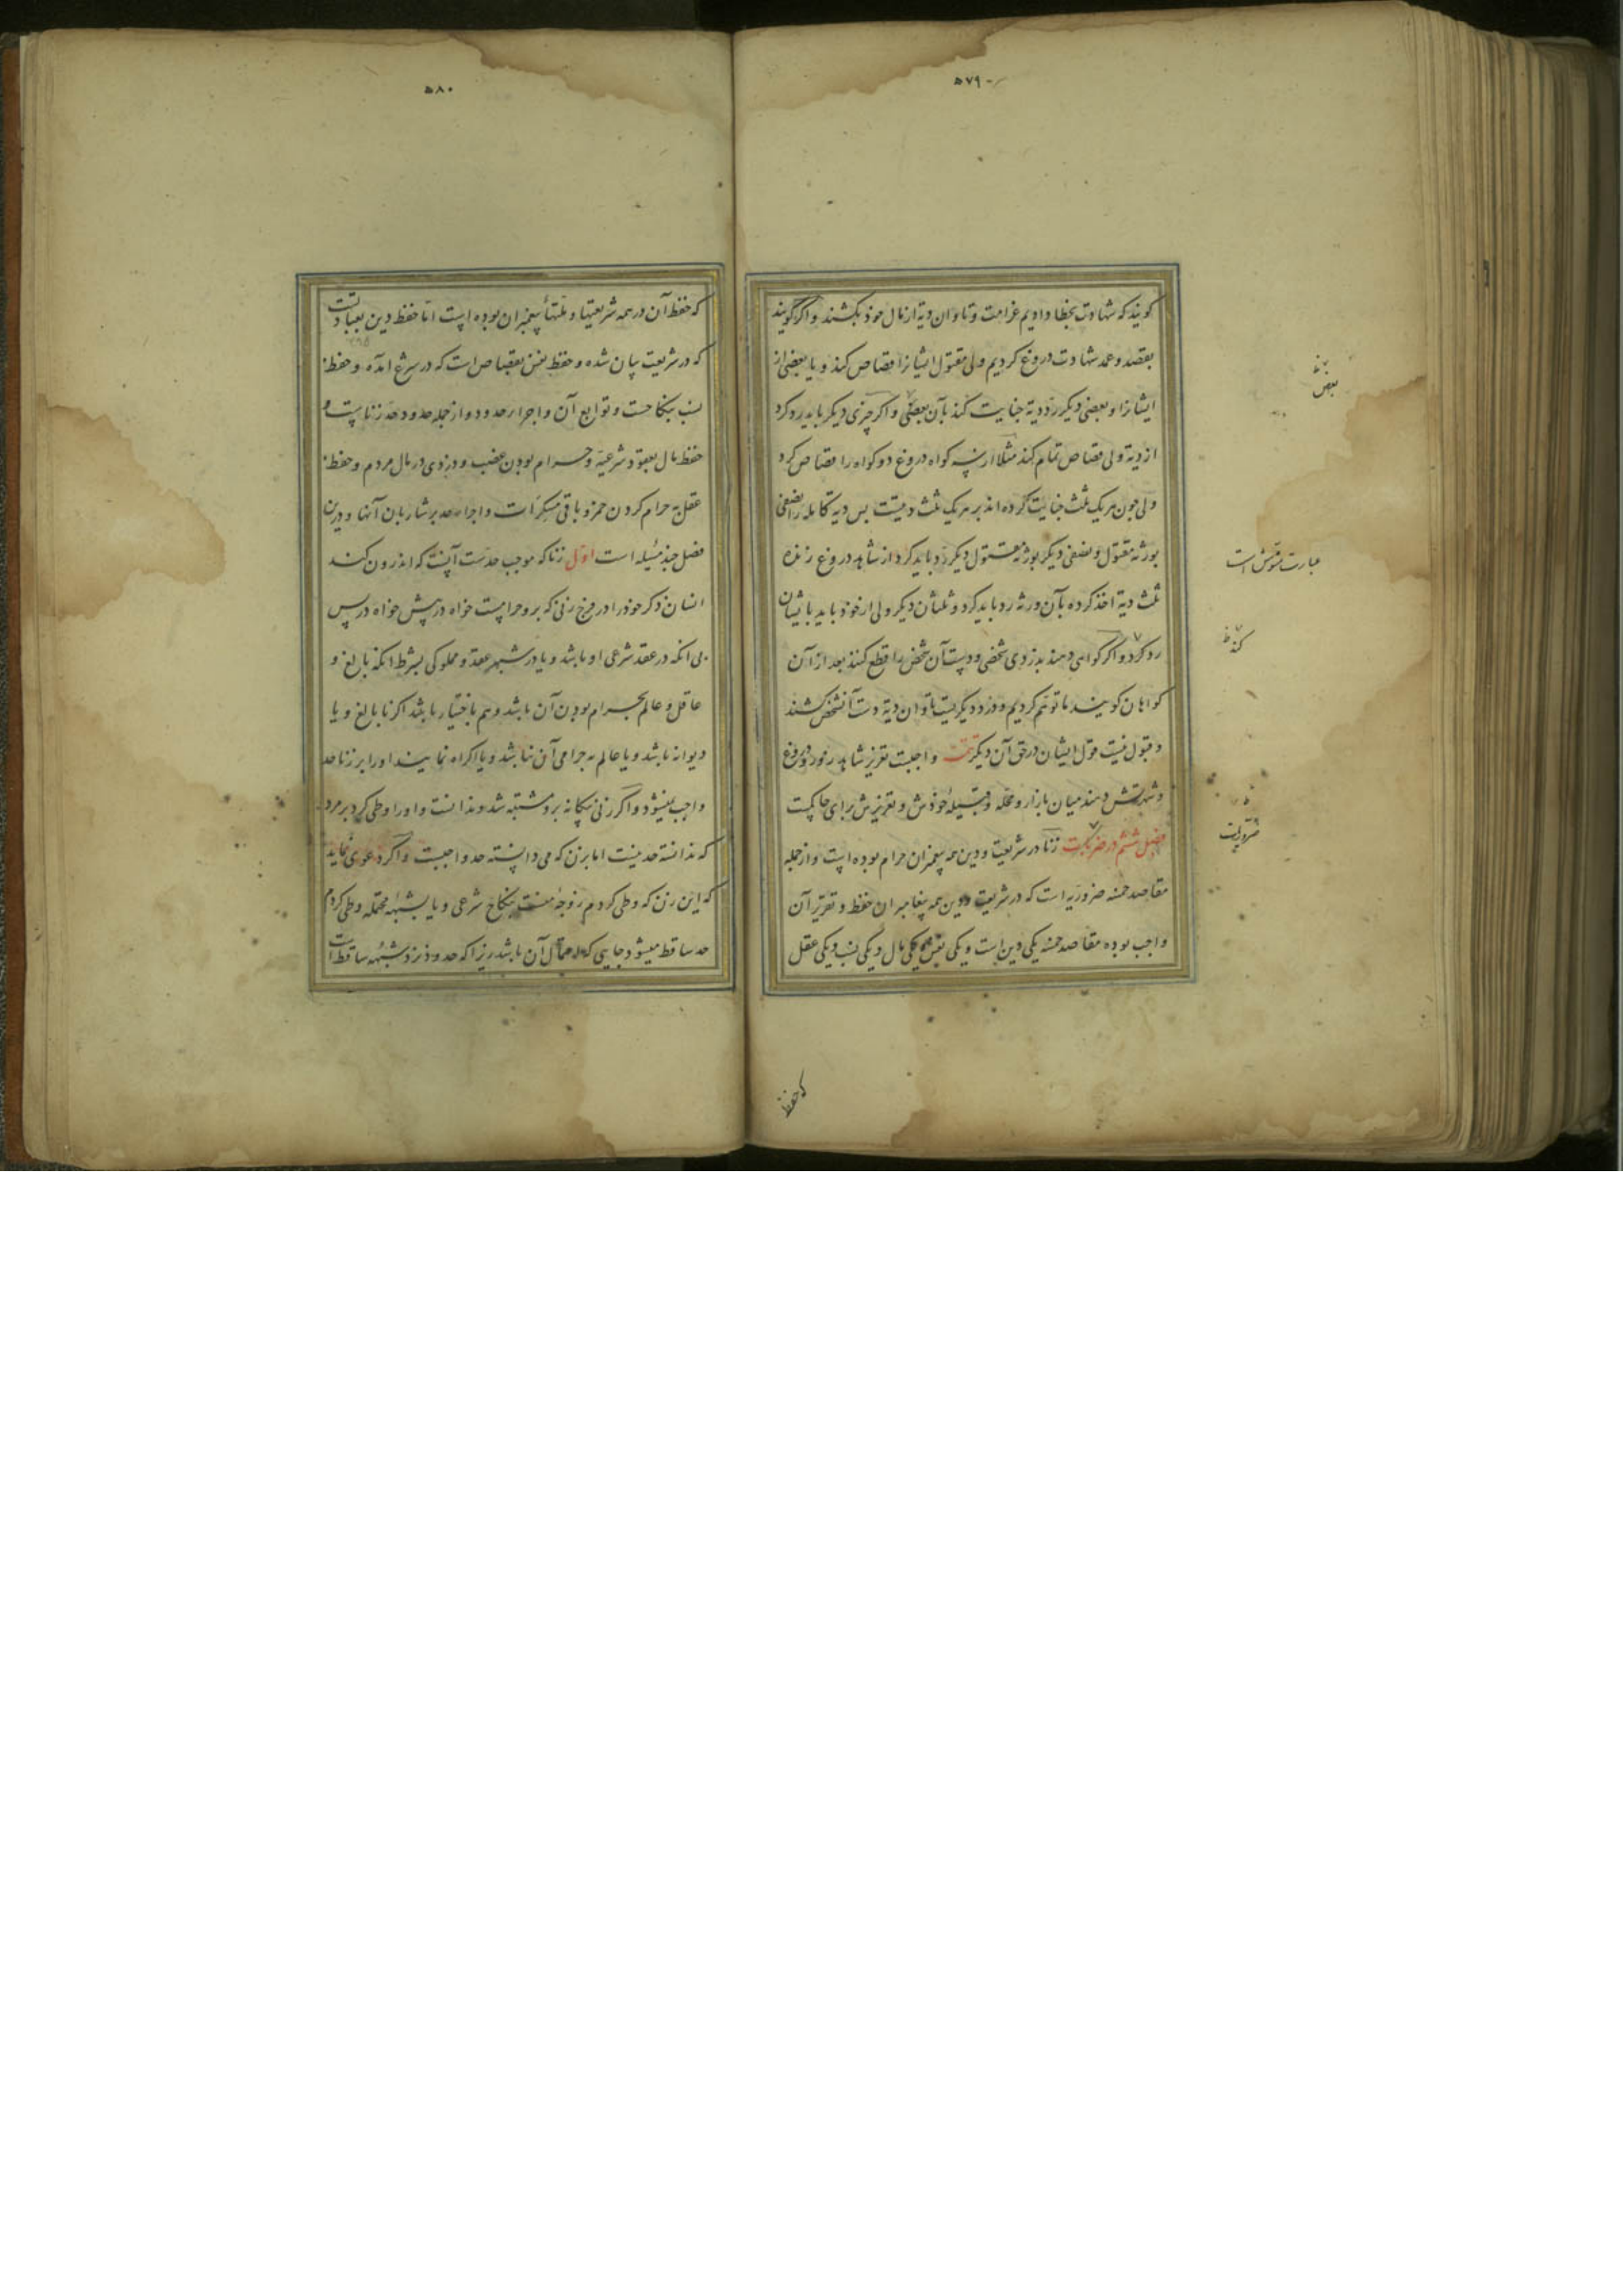 ۵۷۹
کویند که شهادت بخطا دادیم غرامت و تاوان دیة از مال خوذ بکشند و اکر کویند
بقصد و عمد شهادت دروغ کردیم ولی مقتول ایشانرا قصاص کند و یا بعضی از
ایشانرا و بعضی دیکر رد دیة جنایت کند بآن بعضی و اکر چیزی دیکر باید رد کرد
از دیة ولی قصاص تمام کند مثلا از سه کواه دروغ دو کواه را قصاص کرد
ولی جون هریک ثلث جنایت کرده اند بر هریک ثلث دیتست بس دیة کامله را نصفی
بورثه مقتول و نصفی دیکر بورثه مقتول دیکر رد باید کرد و از شاهد دروغ زنده
ثلث دیة اخذ کرده بآن ورثه رد باید کرد و ثلثان دیکر ولی از خوذ باید بایشان
رد کرد و اکر کواهی دهند بدزدی شخصی و دست آن شخص را قطع کنند بعد از آن
کواهان کویند ما توهم کردیم و دزد دیکریست تاوان دیة دست آنشخص کشند
و قبول نیست قول ایشان در حق آن دیکر تتمه واجبست تعزیر شاهد زور و دروغ
و شهرتش دهند میان بازار و محله و قبیلهٔ خوذش و تعزیرش برای حاکمست
فصل ششم در ضربت زنا در شریعت و دین همه پیغمبران حرام بوده است و از جمله
مقاصد خمسه ضروریه است که در شریعت و دین همه پیغامبران حفظ و تقریر آن
واجب بوده مقاصد خمسه یکی دین است و یکی نفس و یکی مال و یکی نسب و یکی عقل
بعض
عبارت مشوش است
کند ظ
ضروریات
که حفظ
۵۸۰
که حفظ آن در همه شریعتها و ملتهأ پیغمبران بوده است اما حفظ دین بعباداتست
که در شریعت بیان شده و حفظ نفس بقصاص است که در شرع آمده و حفظ
نسب بنکاحست و توابع آن و اجراء حدود و از جمله حدود حد زناست و
حفظ مال بعقود شرعیه و حرام بودن غصب و دزدی در مال مردم و حفظ
عقل به حرام کردن خمر و باقی مسکرات و اجراء حد بر شاربان آنها و درین
فصل جند مسئله است اول زنا که موجب حدست آنست که اندرون کند
انسان ذکر خوذ را در فرج زنی که برو حرامست خواه در پیش خواه در پس
بی انکه در عقد شرعی او باشد و یا در شبهه عقد و مملوکی بشرط انکه بالغ و
عاقل و عالم بحرام بودن آن باشد و هم باختیار باشد اکر نابالغ و یا
دیوانه باشد و یا عالم به حرامی آن نباشد و یا اکراه نمایند او را بر زنا حد
واجب نمیشود و اکر زنی بیکانه برو مشتبه شد و ندانست و او را وطی کرد بر مرد
که ندانسته حد نیست اما بر زن که می دانسته حد واجبست و اکر دعوی نماید
که این زن که وطی کردم زوجهٔ منست بنکاح شرعی و یا بشبههٔ محتمله وطی کردم
حد ساقط میشود جایی که احتمال آن باشد زیرا که حدود نزد شبهه ساقط است